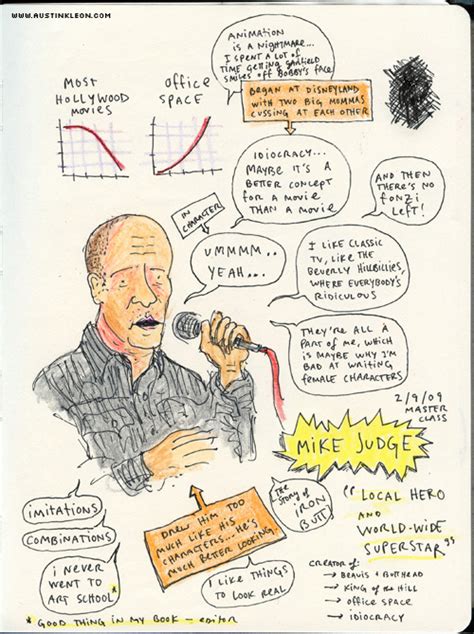 WWW.AUSTINKLEON.COM
ANIMATION
IS A NIGHTMARE...
I SPENT A LOT OF
TIME GETTING GARFIELD
SMILES OFF BOBBY'S FACE
MOST
HOLLYWOOD
MOVIES
OFFICE
SPACE
BEGAN AT DISNEYLAND
WITH TWO BIG MOMMAS
CUSSING AT EACH OTHER
IDIOCRACY...
MAYBE IT'S A
BETTER CONCEPT
FOR A MOVIE
THAN A MOVIE
AND THEN
THERE'S NO
FONZI
LEFT!
IN
CHARACTER
UMMMM..
YEAH...
I LIKE CLASSIC
TV, LIKE THE
BEVERLY HILLBILLIES,
WHERE EVERYBODY'S
RIDICULOUS
THEY'RE ALL A
PART OF ME, WHICH
IS MAYBE WHY I'M
BAD AT WRITING
FEMALE CHARACTERS
2/9/09
MASTER
CLASS
MIKE JUDGE
"LOCAL HERO
AND
WORLD-WIDE
SUPERSTAR"
THE STORY OF
IRON
BUTT
IMITATIONS
COMBINATIONS
I NEVER
WENT TO
ART SCHOOL*
DREW HIM TOO
MUCH LIKE HIS
CHARACTERS... HE'S
MUCH BETTER LOOKING..
I LIKE THINGS
TO LOOK REAL
CREATOR OF:
→ BEAVIS + BUTTHEAD
→ KING OF THE HILL
→ OFFICE SPACE
→ IDIOCRACY
* GOOD THING IN MY BOOK - EDITOR